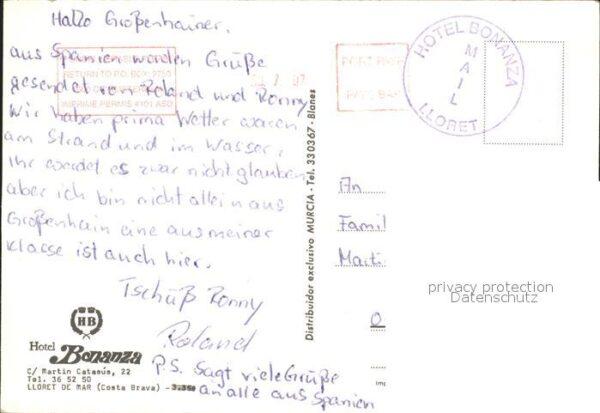 Hallo Großenhainer,
aus Spanien werden Grüße
gesendet von Roland und Ronny
Wir haben prima Wetter waren
am Strand und im Wasser.
Ihr werdet es zwar nicht glauben
aber ich bin nicht allein aus
Großenhain eine aus meiner
Klasse ist auch hier.
Tschüß Ronny
Roland
P.S. Sagt viele Grüße
an alle aus Spanien
RETURN TO P.O. BOX
HB
Hotel Bonanza
C/ Martin Catasús, 22
Tel. 36 52 50
LLORET DE MAR (Costa Brava)
Distribuidor exclusivo MURCIA - Tel. 330367 - Blanes
HOTEL BONANZA
MAIL
LLORET
An
Famil
Marti
privacy protection
Datenschutz